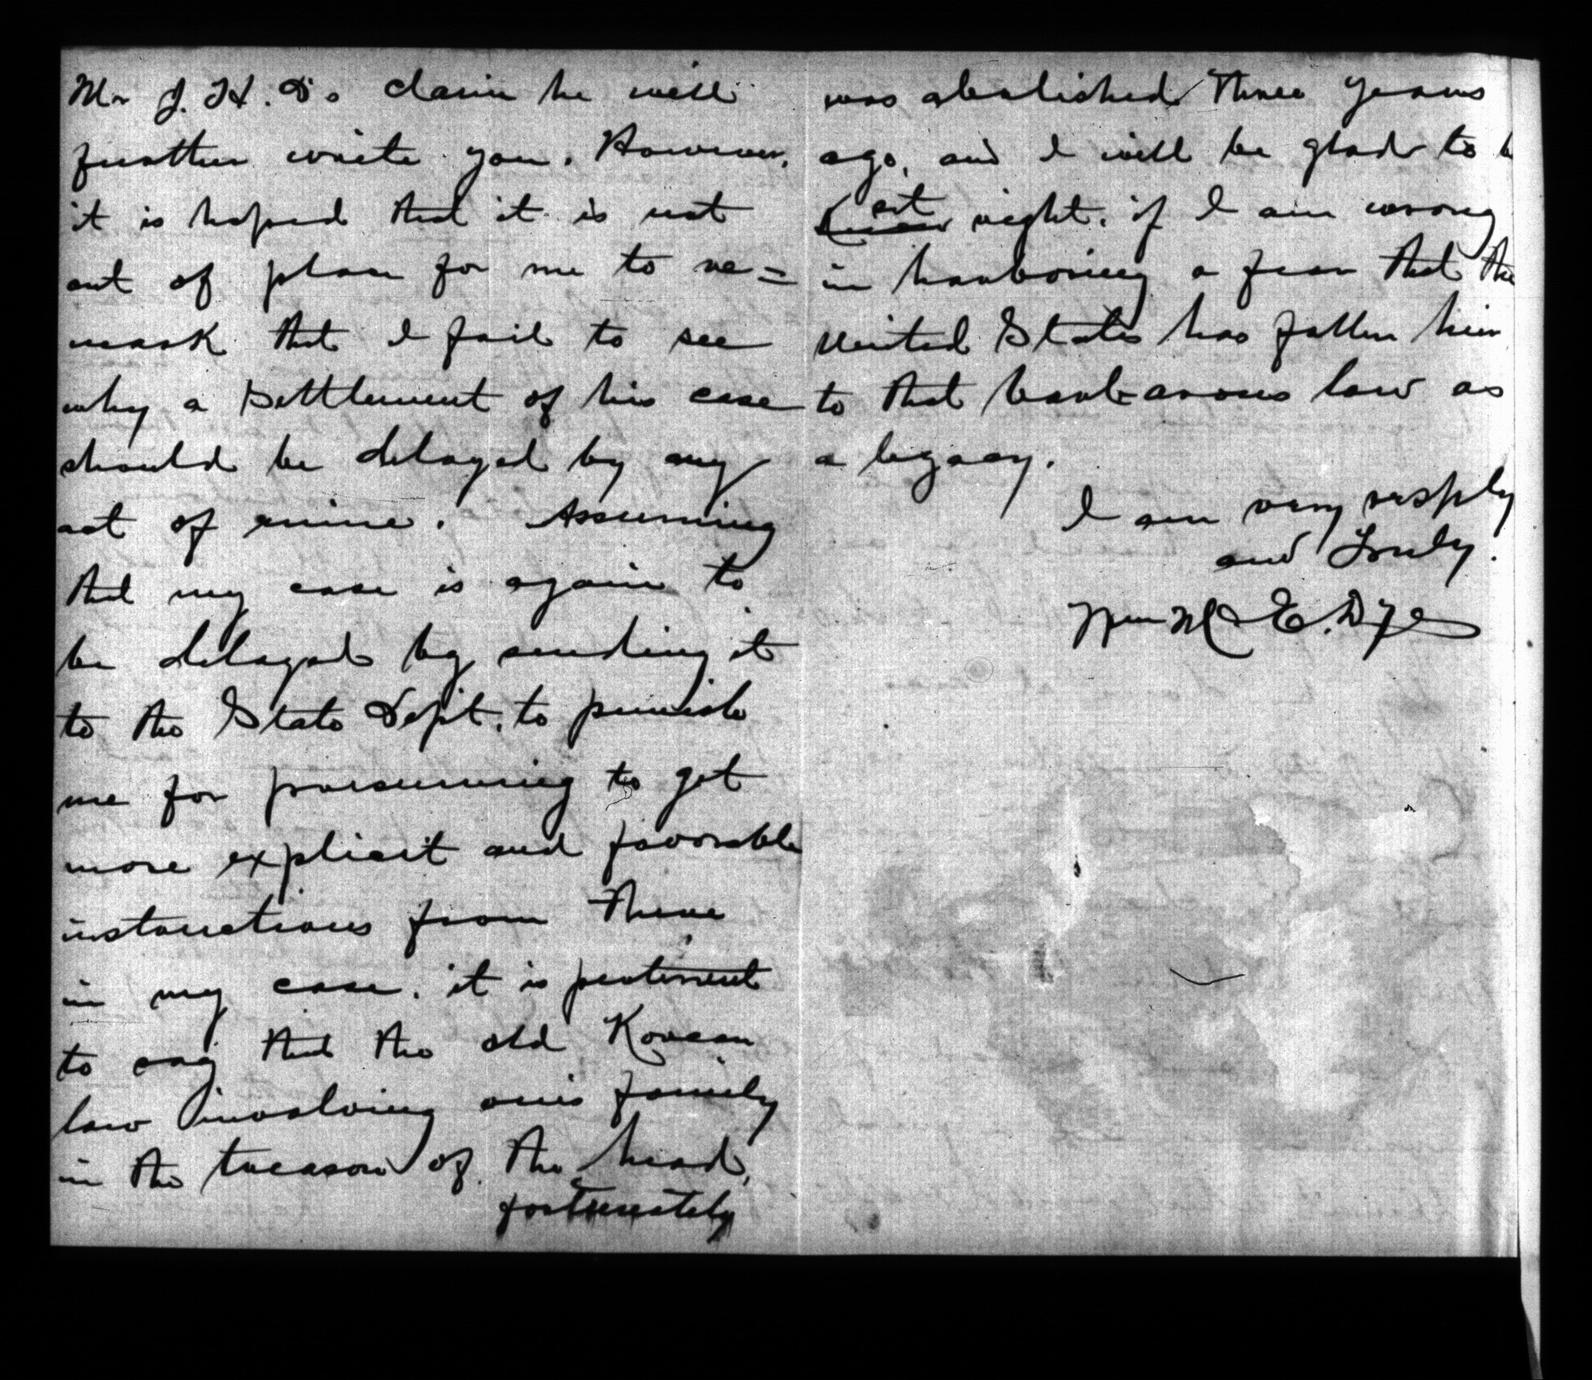 Mr J. H. D's claim he will
further write you. However,
it is hoped that it is not
out of place for me to re=
mark that I fail to see
why a settlement of his case
should be delayed by any
act of mine. Assuming
that my case is again to
be delayed by sending it
to the State Dept. to punish
me for presuming to get
more explicit and favorable
instructions from there
in my case, it is pertinent
to say that the old Korean
law involving one's family
in the treason of the head,
fortunately
was abolished three years
ago, and I will be glad to be
set
right, if I am wrong
in harboring a fear that the
United States has fallen heir
to that barbarous law as
a legacy.
I am very respfly
and truly.
Wm McE. Dye